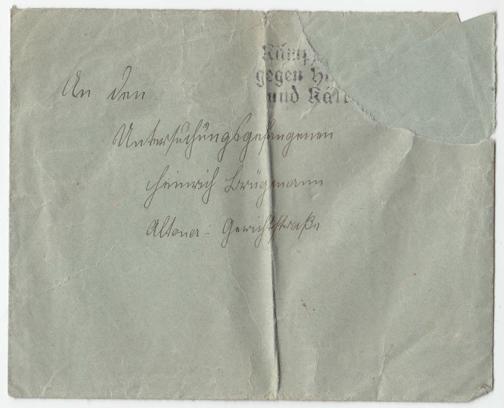 Kämp
gegen H
und Käl
An den
Untersuchungsgefangenen
Heinrich Brügmann
Altona - Gerichtstraße